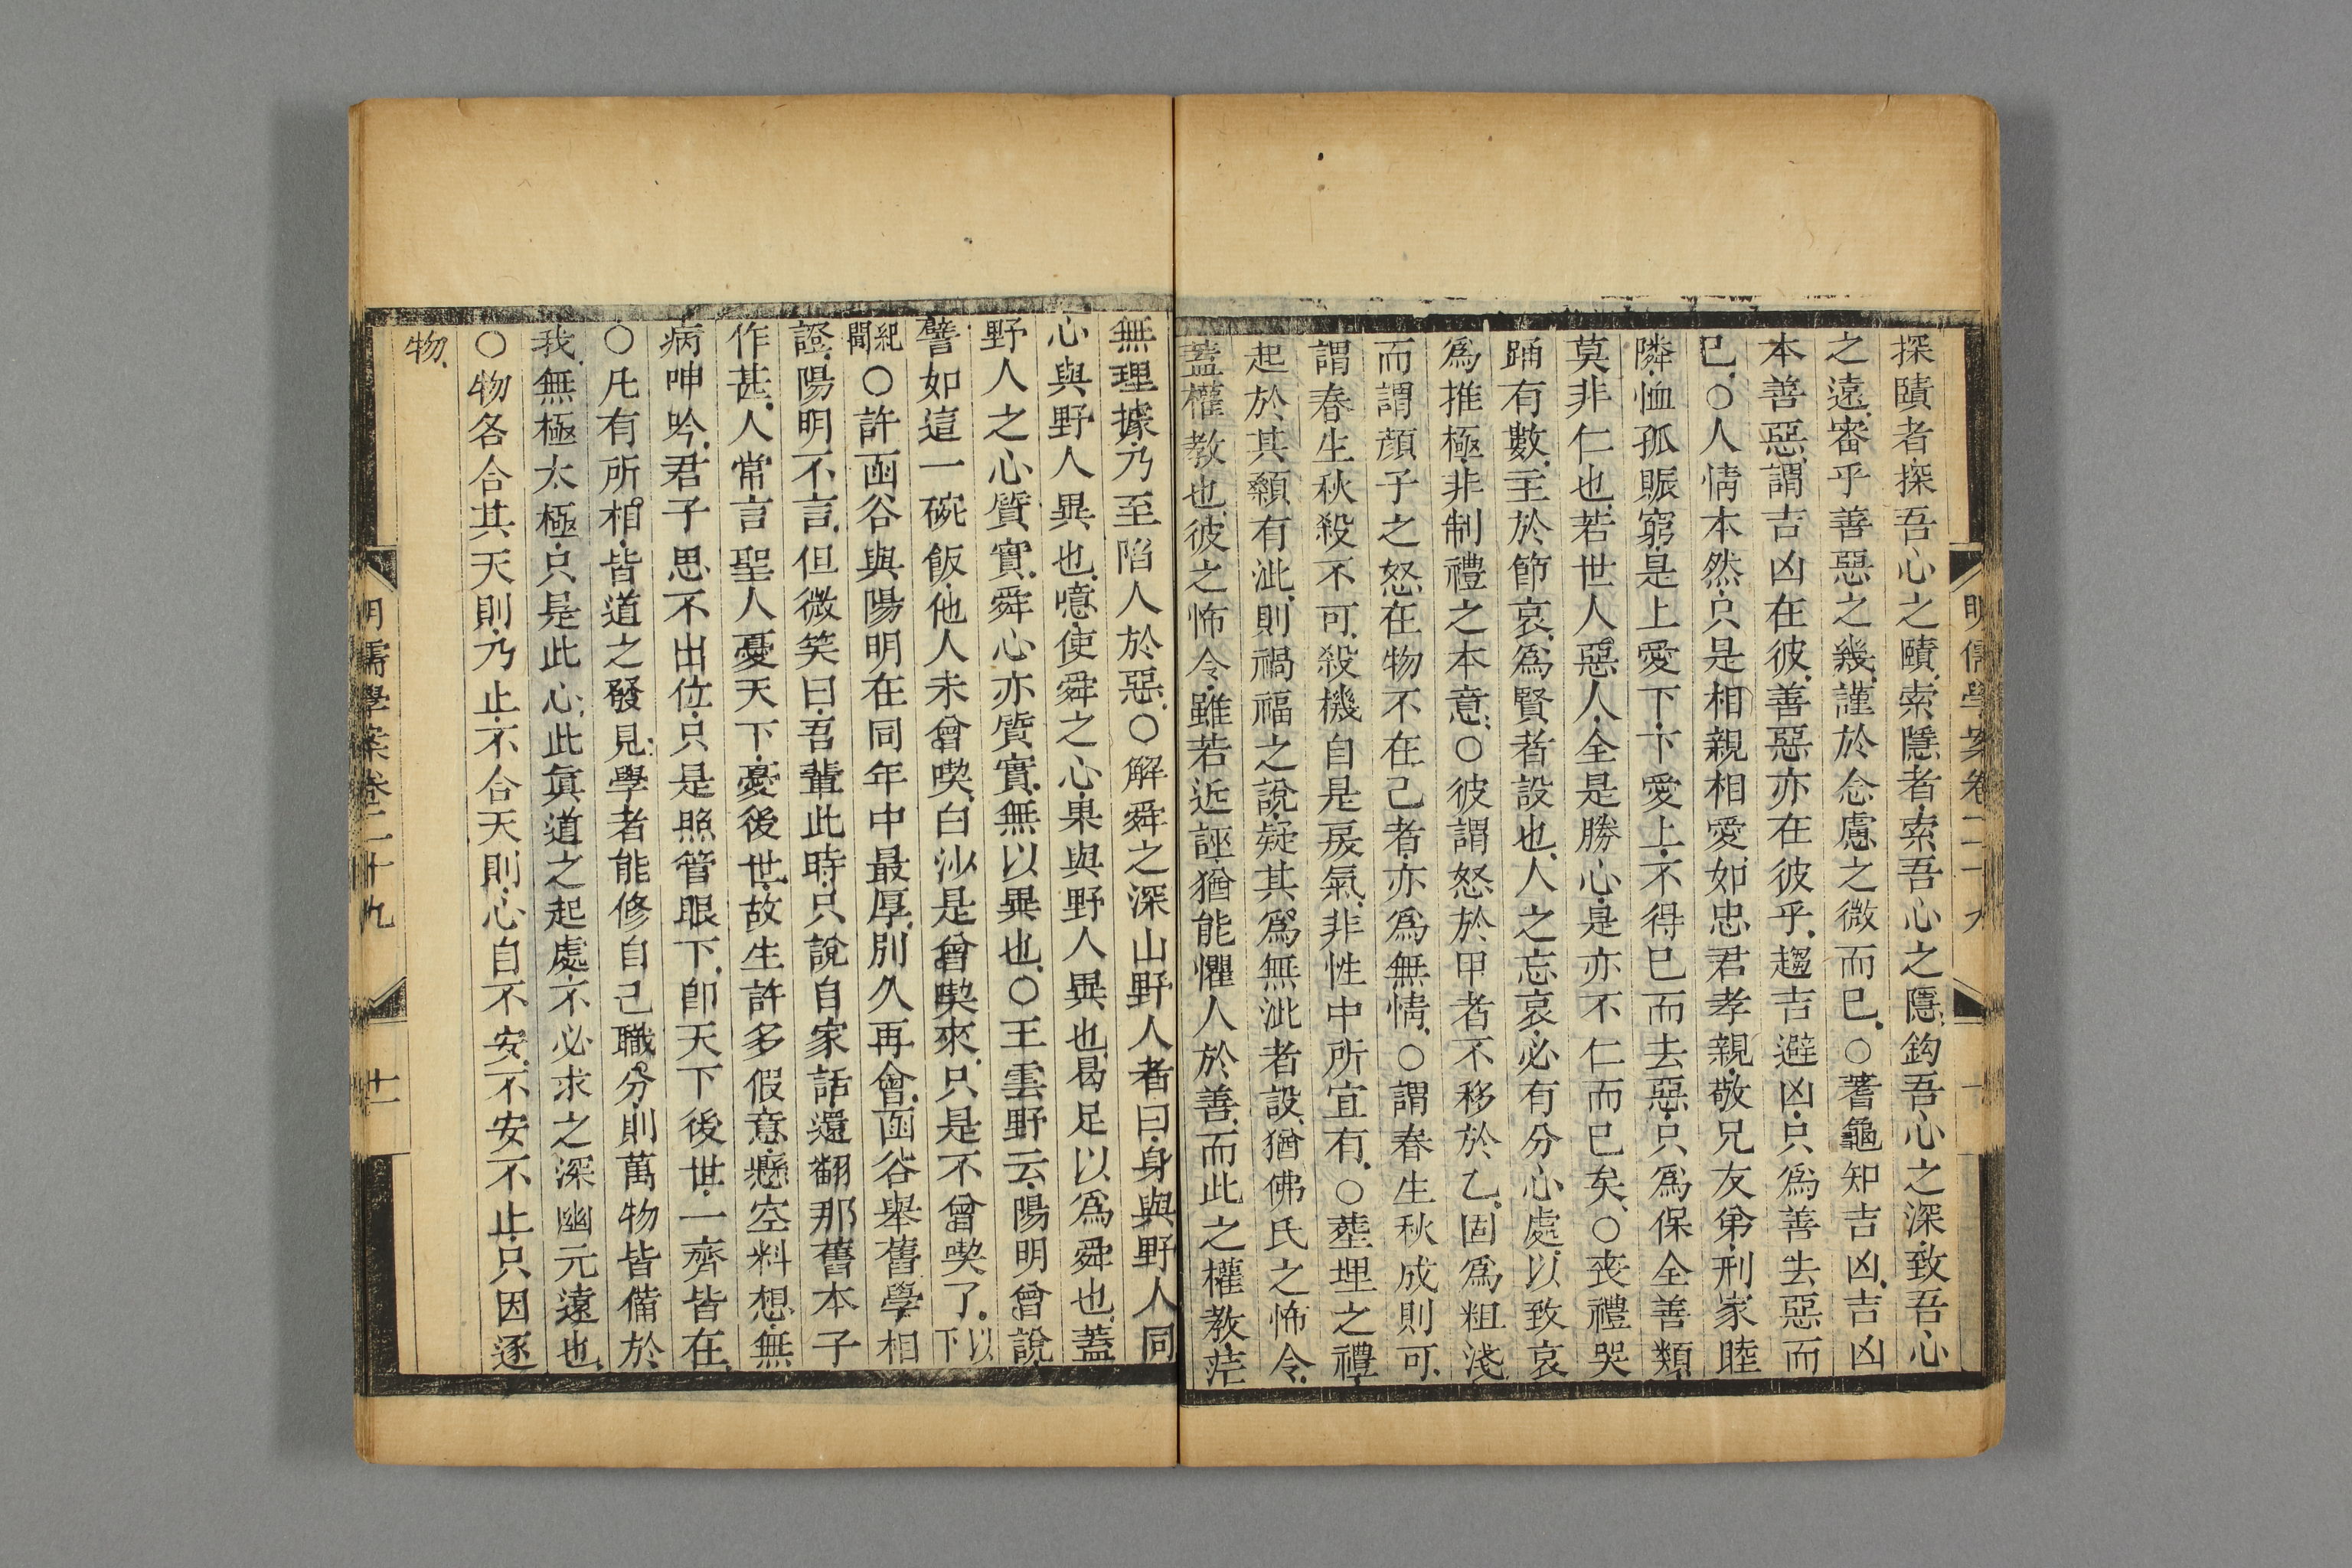 探賾者探吾心之賾索隱者索吾心之隱鈎吾心之深致吾心
之遠審乎善惡之幾謹於念慮之微而已○蓍龜知吉凶吉凶
本善惡謂吉凶在彼善惡亦在彼乎趨吉避凶只為善去惡而
已○人情本然只是相親相愛如忠君孝親敬兄友弟刑家睦
隣恤孤賑窮是上愛下下愛上不得已而去惡只為保全善類
莫非仁也若世人惡人全是勝心是亦不仁而已矣○喪禮哭
踊有數主於節哀為賢者設也人之忘哀必有分心處以致哀
為推極非制禮之本意○彼謂怒於甲者不移於乙固為粗淺
而謂顏子之怒在物不在己者亦為無情○謂春生秋成則可
謂春生秋殺不可殺機自是戾氣非性中所宜有○塟埋之禮
起於其顙有泚則禍福之說疑其為無泚者設猶佛氏之怖令
蓋權教也彼之怖令雖若近誣猶能懼人於善而此之權教茫
無理據乃至陷人於惡○解舜之深山野人者曰身與野人同
心與野人異也噫使舜之心果與野人異也曷足以為舜也蓋
野人之心質實舜心亦質實無以異也○王雲野云陽明曾說
譬如這一碗飯他人未曾喫白沙是曾喫來只是不曾喫了以下
紀聞○許函谷與陽明在同年中最厚別久再會函谷舉舊學相
證陽明不言但微笑曰吾輩此時只說自家話還翻那舊本子
作甚人常言聖人憂天下憂後世故生許多假意懸空料想無
病呻吟君子思不出位只是照管眼下卽天下後世一齊皆在
○凡有所相皆道之發見學者能修自己職分則萬物皆備於
我無極太極只是此心此真道之起處不必求之深幽元遠也
○物各合其天則乃止不合天則心自不安不安不止只因逐
物
明儒學案卷二十九
明儒學案卷二十九
十一